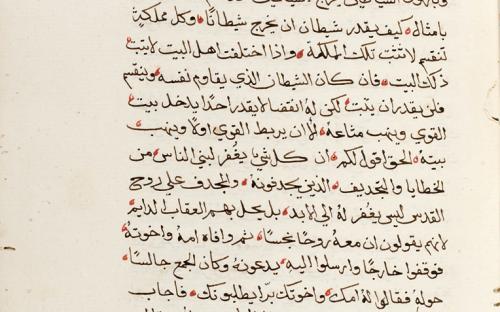 بامثاله كيف يقدر شيطان ان يخرج شيطانًا وكل مملكةٍ
تنقسم لا تثبت تلك المملكة واذا اختلفت اهل البيت لا يثبت
ذلك البيت فان كان الشيطان الذي يقاوم نفسه وينقسم
فلن يقدر ان يثبت لكن له انقضا لا يقدر احدًا يدخل بيت
القوي وينهب متاعهُ الا ان يربط القوي اولًا وينهب
بيتهُ الحق اقول لكم ان كل شي يغفر لبني الناس من
الخطايا والتجديف الذين يجدفونهُ والمجدف علي روح
القدس ليس يغفر لهُ الي الابد بل يحل بهم العقاب الدايم
لانهم يقولون ان معهُ روحًا نجسًا ثم وافاه امهُ واخوتهُ
فوقفوا خارجًا وارسلوا اليهِ يدعونهُ وكان الجمع جالسًا
حولهُ فقالوا لهُ امك واخوتك برّا يطلبونك فاجاب